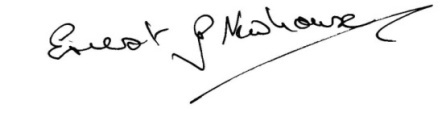 Ernest G Newhouse